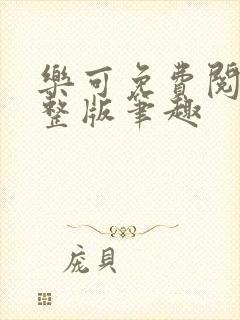 樂可免費閱
整版筆趣
庞貝